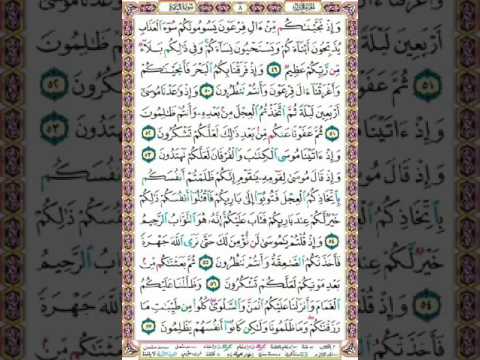 سورة البقرة ٨ الجزء الأول
وَإِذْ نَجَّيْنَٰكُم مِّنْ ءَالِ فِرْعَوْنَ يَسُومُونَكُمْ سُوٓءَ ٱلْعَذَابِ
يُذَبِّحُونَ أَبْنَآءَكُمْ وَيَسْتَحْيُونَ نِسَآءَكُمْ وَفِى ذَٰلِكُم بَلَآءٌ
مِّن رَّبِّكُمْ عَظِيمٌ ٤٩ وَإِذْ فَرَقْنَا بِكُمُ ٱلْبَحْرَ فَأَنجَيْنَٰكُمْ
وَأَغْرَقْنَآ ءَالَ فِرْعَوْنَ وَأَنتُمْ تَنظُرُونَ ٥٠ وَإِذْ وَٰعَدْنَا مُوسَىٰٓ
أَرْبَعِينَ لَيْلَةً ثُمَّ ٱتَّخَذْتُمُ ٱلْعِجْلَ مِنۢ بَعْدِهِۦ وَأَنتُمْ ظَٰلِمُونَ
٥١ ثُمَّ عَفَوْنَا عَنكُم مِّنۢ بَعْدِ ذَٰلِكَ لَعَلَّكُمْ تَشْكُرُونَ ٥٢
وَإِذْ ءَاتَيْنَا مُوسَى ٱلْكِتَٰبَ وَٱلْفُرْقَانَ لَعَلَّكُمْ تَهْتَدُونَ ٥٣
وَإِذْ قَالَ مُوسَىٰ لِقَوْمِهِۦ يَٰقَوْمِ إِنَّكُمْ ظَلَمْتُمْ أَنفُسَكُم
بِٱتِّخَاذِكُمُ ٱلْعِجْلَ فَتُوبُوٓا۟ إِلَىٰ بَارِئِكُمْ فَٱقْتُلُوٓا۟ أَنفُسَكُمْ ذَٰلِكُمْ
خَيْرٌ لَّكُمْ عِندَ بَارِئِكُمْ فَتَابَ عَلَيْكُمْ إِنَّهُۥ هُوَ ٱلتَّوَّابُ ٱلرَّحِيمُ
٥٤ وَإِذْ قُلْتُمْ يَٰمُوسَىٰ لَن نُّؤْمِنَ لَكَ حَتَّىٰ نَرَى ٱللَّهَ جَهْرَةً
فَأَخَذَتْكُمُ ٱلصَّٰعِقَةُ وَأَنتُمْ تَنظُرُونَ ٥٥ ثُمَّ بَعَثْنَٰكُم مِّنۢ
بَعْدِ مَوْتِكُمْ لَعَلَّكُمْ تَشْكُرُونَ ٥٦ وَظَلَّلْنَا عَلَيْكُمُ
ٱلْغَمَامَ وَأَنزَلْنَا عَلَيْكُمُ ٱلْمَنَّ وَٱلسَّلْوَىٰ كُلُوا۟ مِن طَيِّبَٰتِ مَا
رَزَقْنَٰكُمْ وَمَا ظَلَمُونَا وَلَٰكِن كَانُوٓا۟ أَنفُسَهُمْ يَظْلِمُونَ ٥٧